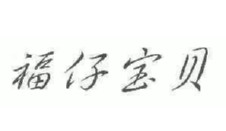 福仔宝贝